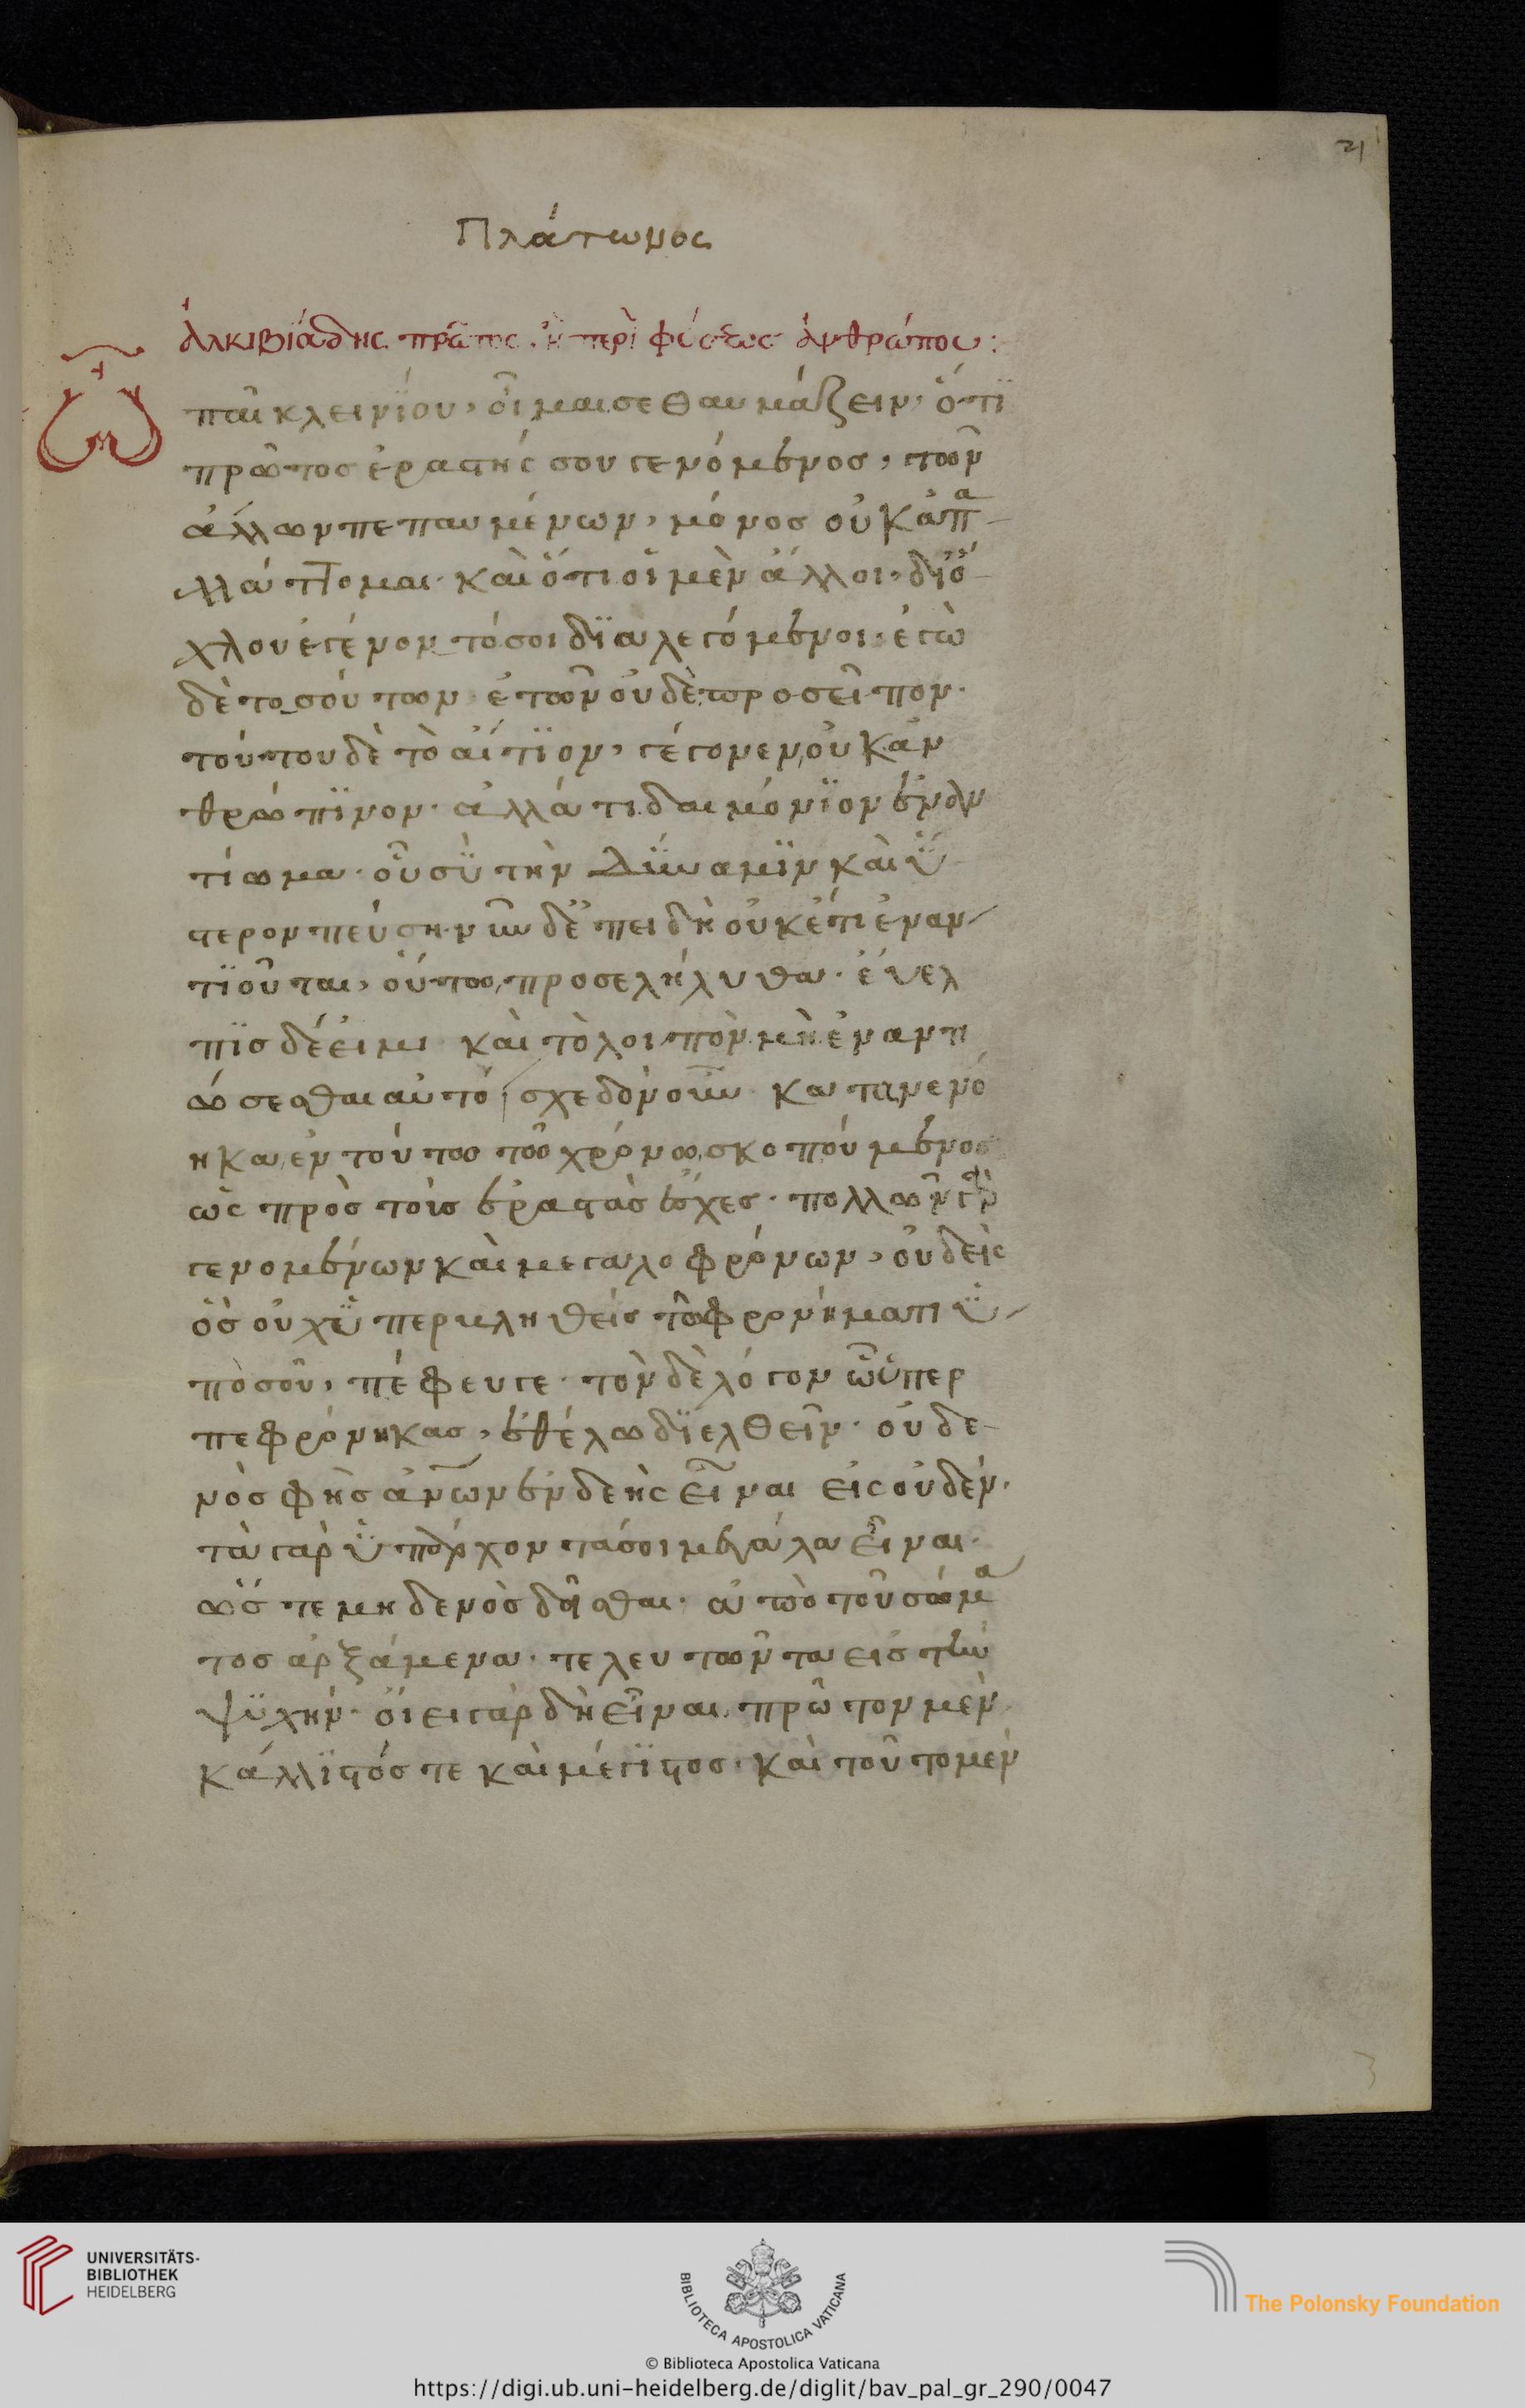 21
Πλάτωνος
ἀλκιβιάδης πρῶτος· ἢ περὶ φύσεως ἀνθρώπου:
Ὦ
παῖ κλεινίου, οἶμαί σε θαυμάζειν, ὅτι
πρῶτος ἐραστής σου γενόμενος, τῶν
ἄλλων πεπαυμένων, μόνος οὐκ ἀπα
λλάττομαι· καὶ ὅτι οἱ μὲν ἄλλοι, δι' ὄ
χλου ἐγένοντό σοι διαλεγόμενοι· ἐγὼ
δὲ τοσούτων ἐτῶν οὐδὲ προσεῖπον·
τούτου δὲ τὸ αἴτιον, γέγονεν, οὐκ ἀν
θρώπινον· ἀλλά τι δαιμόνιον ἐναν
τίωμα· οὗ σὺ τὴν δύναμιν καὶ ὕ
στερον πεύση· νῦν δὲ ἐπειδὴ οὐκέτι ἐναν
τιοῦται, οὕτω προσελήλυθα· εὔελ
πις δέ εἰμι καὶ τὸ λοιπὸν μὴ ἐναντι
ώσεσθαι αὐτό· σχεδὸν οὖν κατανενό
ηκα, ἐν τούτω τῶ χρόνω, σκοπούμενος
ὡς πρὸς τοὺς ἐραστὰς ἔσχες· πολλῶν γὰρ
γενομένων καὶ μεγαλοφρόνων, οὐδεὶς
ὃς οὐχ ὑπερβληθεὶς τῶ φρονήματι ὑ
πὸ σοῦ, πέφευγε· τὸν δὲ λόγον ᾧ ὑπερ
πεφρόνηκας, ἐθέλω διελθεῖν· οὐδε
νὸς φὴς ἀνων ἐνδεὴς εἶναι εἰς οὐδέν·
τὰ γὰρ ὑπάρχοντά σοι μεγάλα εἶναι·
ὥστε μηδενὸς δεῖσθαι· ἀπὸ τοῦ σώμα
τος ἀρξάμενα· τελευτῶντα εἰς τὴν
ψυχήν· οἴει γὰρ δὴ εἶναι πρῶτον μὲν
κάλλιστός τε καὶ μέγιστος· καὶ τοῦτο μὲν
3
UNIVERSITÄTS-
BIBLIOTHEK
HEIDELBERG
BIBLIOTECA APOSTOLICA VATICANA
© Biblioteca Apostolica Vaticana
The Polonsky Foundation
https://digi.ub.uni-heidelberg.de/diglit/bav_pal_gr_290/0047